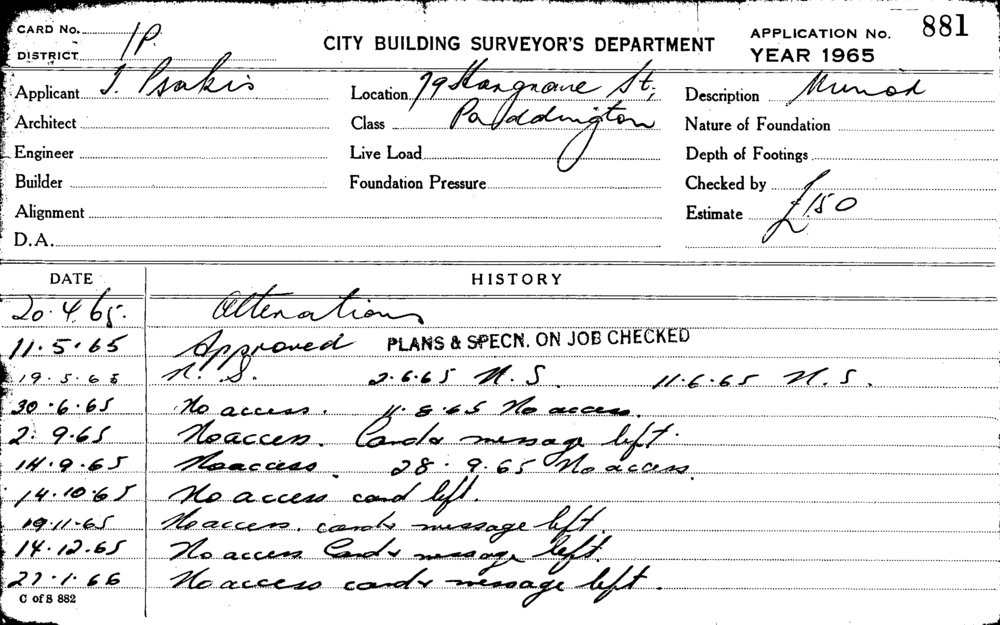 CARD No. 1P. CITY BUILDING SURVEYOR'S DEPARTMENT APPLICATION No. 881
DISTRICT YEAR 1965
Applicant J. Psakis Location 79 Hargrave St, Description Minor
Architect Class Paddington Nature of Foundation
Engineer Live Load Depth of Footings
Builder Foundation Pressure Checked by
Alignment Estimate £150
D.A.
DATE HISTORY
20.4.65. Alterations
11.5.65 Approved PLANS & SPECN. ON JOB CHECKED
19.5.65 N.S. 2.6.65 N.S. 11.6.65 N.S.
30.6.65 No access. 11.8.65 No access.
2.9.65 No access. Card & message left.
14.9.65 No access 28.9.65 No access.
14.10.65 No access card left.
19.11.65 No access. card & message left.
14.12.65 No access Card & message left.
27.1.66 No access card & message left.
C of S 882